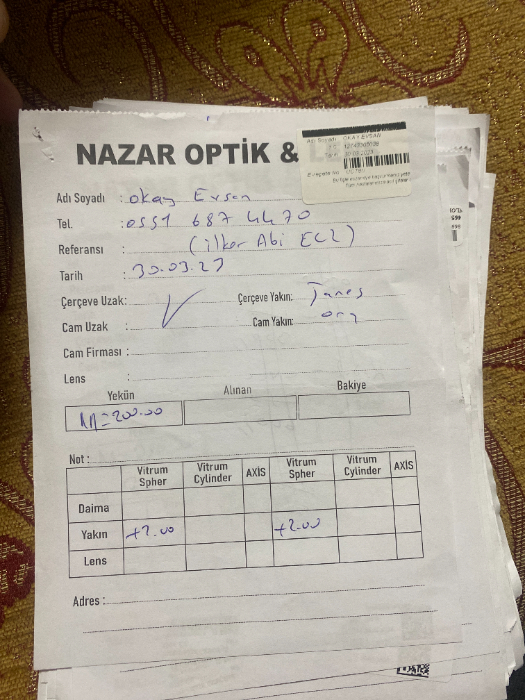 NAZAR OPTİK &
Adı Soyadı : Okay Evsen
Tel. : 0551 687 4470
Referansı : (ilker Abi ECZ)
Tarih : 30.03.23
Çerçeve Uzak: Çerçeve Yakın:
Cam Uzak : Cam Yakın: org
Cam Firması :
Lens :
Yekün Alınan Bakiye
=200.00
Not :
Vitrum Spher Vitrum Cylinder AXİS Vitrum Spher Vitrum Cylinder AXİS
Daima
Yakın +2.00 +2.00
Lens
Adres :